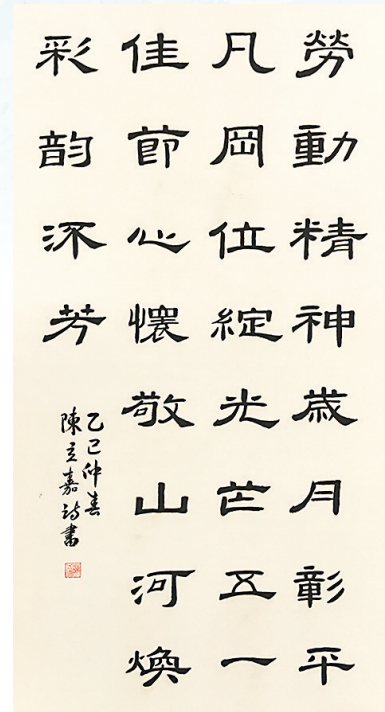 勞動精神歲月彰平
凡岡位綻光芒五一
佳節心懷敬山河煥
彩韵添芳
乙巳仲春
陳立嘉詩書